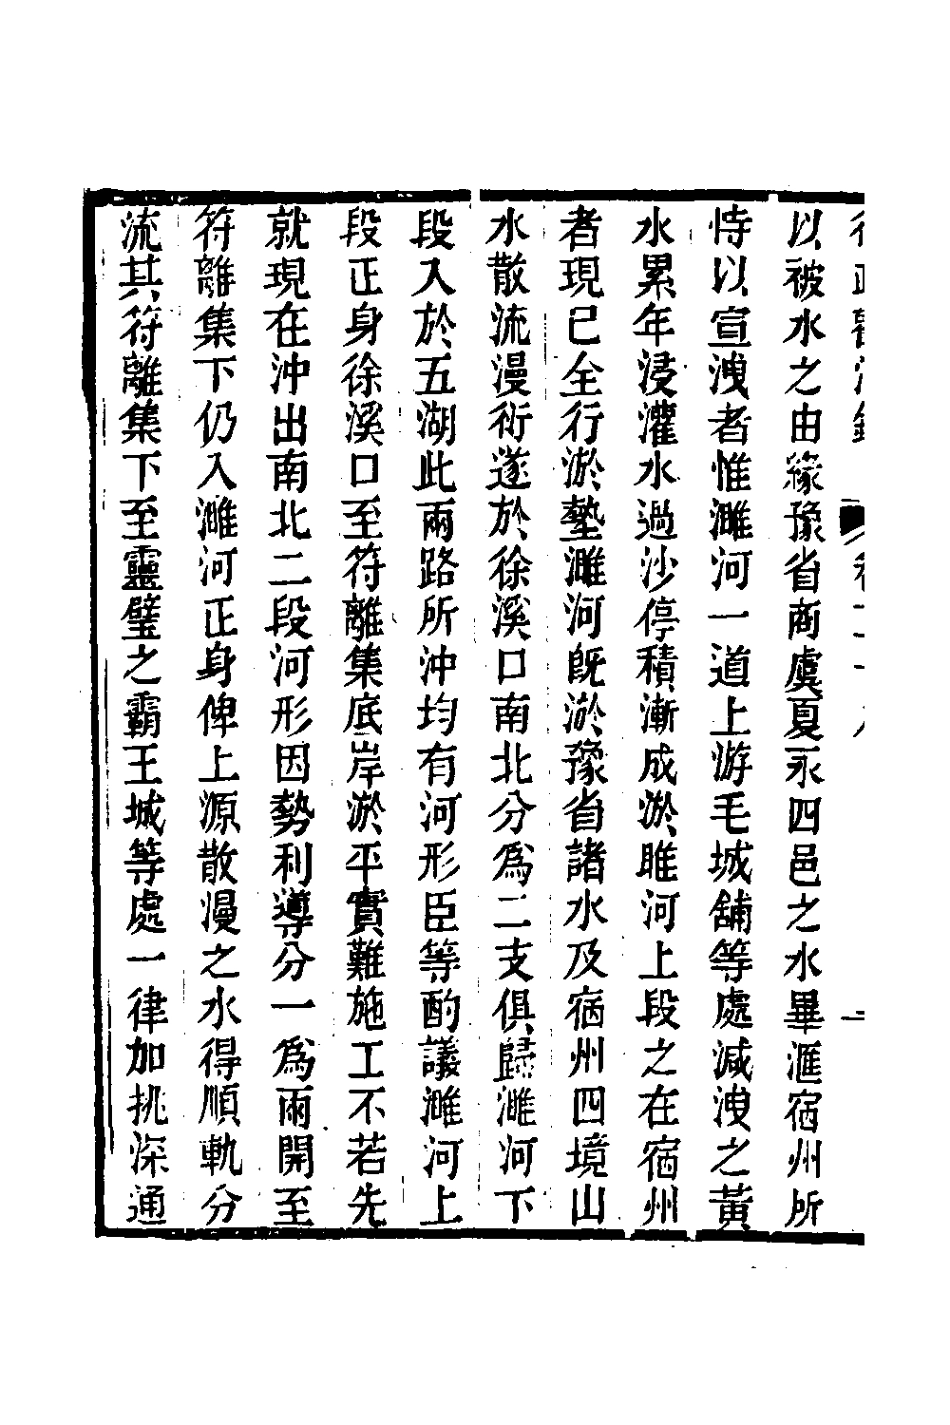 以被水之由緣豫省商虞夏永四邑之水畢滙宿州所
恃以宣洩者惟濉河一道上游毛城舖等處減洩之黃
水累年浸灌水過沙停積漸成淤睢河上段之在宿州
者現已全行淤墊濉河旣淤豫省諸水及宿州四境山
水散流漫衍遂於徐溪口南北分爲二支俱歸濉河下
段入於五湖此兩路所沖均有河形臣等酌議濉河上
段正身徐溪口至符離集底岸淤平實難施工不若先
就現在沖出南北二段河形因勢利導分一爲兩開至
符離集下仍入濉河正身俾上源散漫之水得順軌分
流其符離集下至靈璧之霸王城等處一律加挑深通